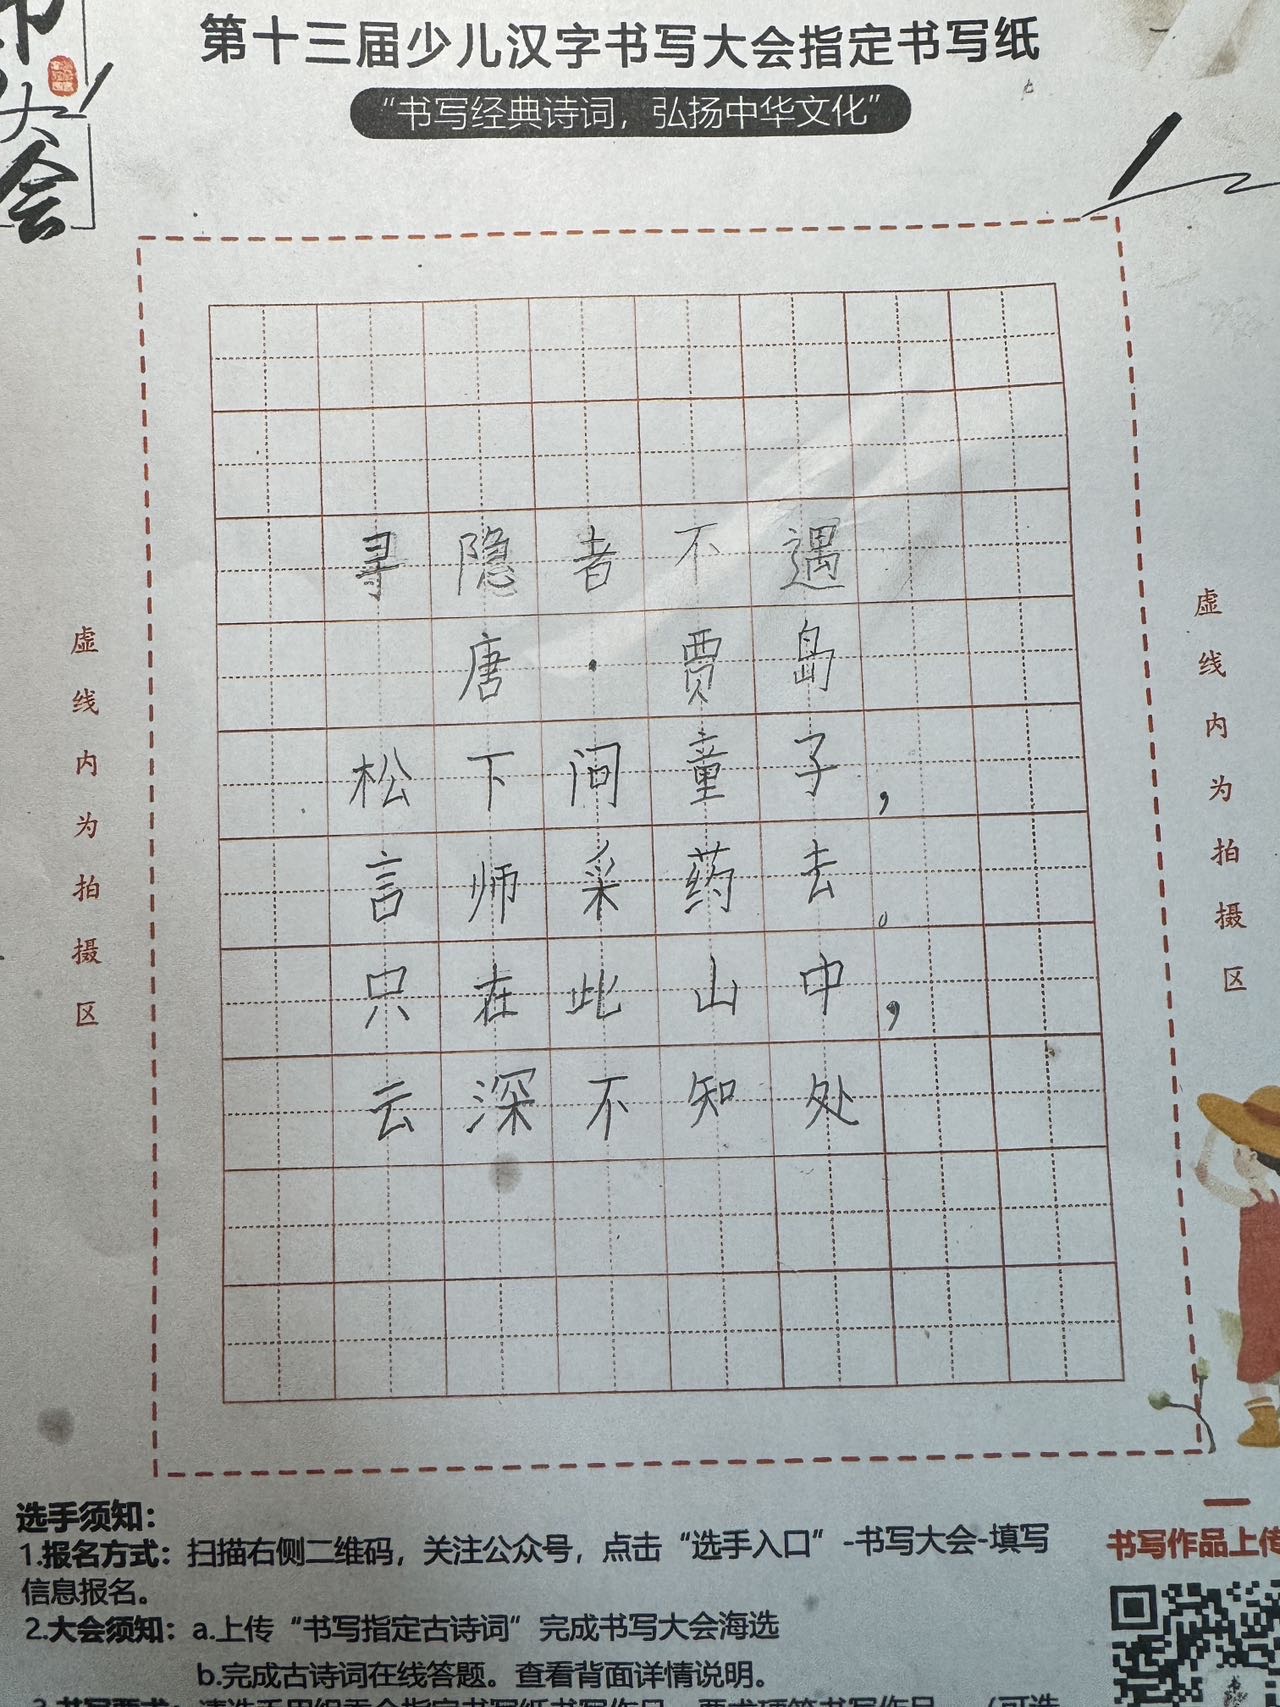 第十三届少儿汉字书写大会指定书写纸
“书写经典诗词，弘扬中华文化”
大会
寻隐者不遇
唐·贾岛
松下问童子，
言师采药去。
只在此山中，
云深不知处
虚线内为拍摄区
虚线内为拍摄区
选手须知：
1.报名方式：扫描右侧二维码，关注公众号，点击“选手入口”-书写大会-填写
信息报名。
2.大会须知：a.上传“书写指定古诗词”完成书写大会海选
b.完成古诗词在线答题。查看背面详情说明。
书写作品上传